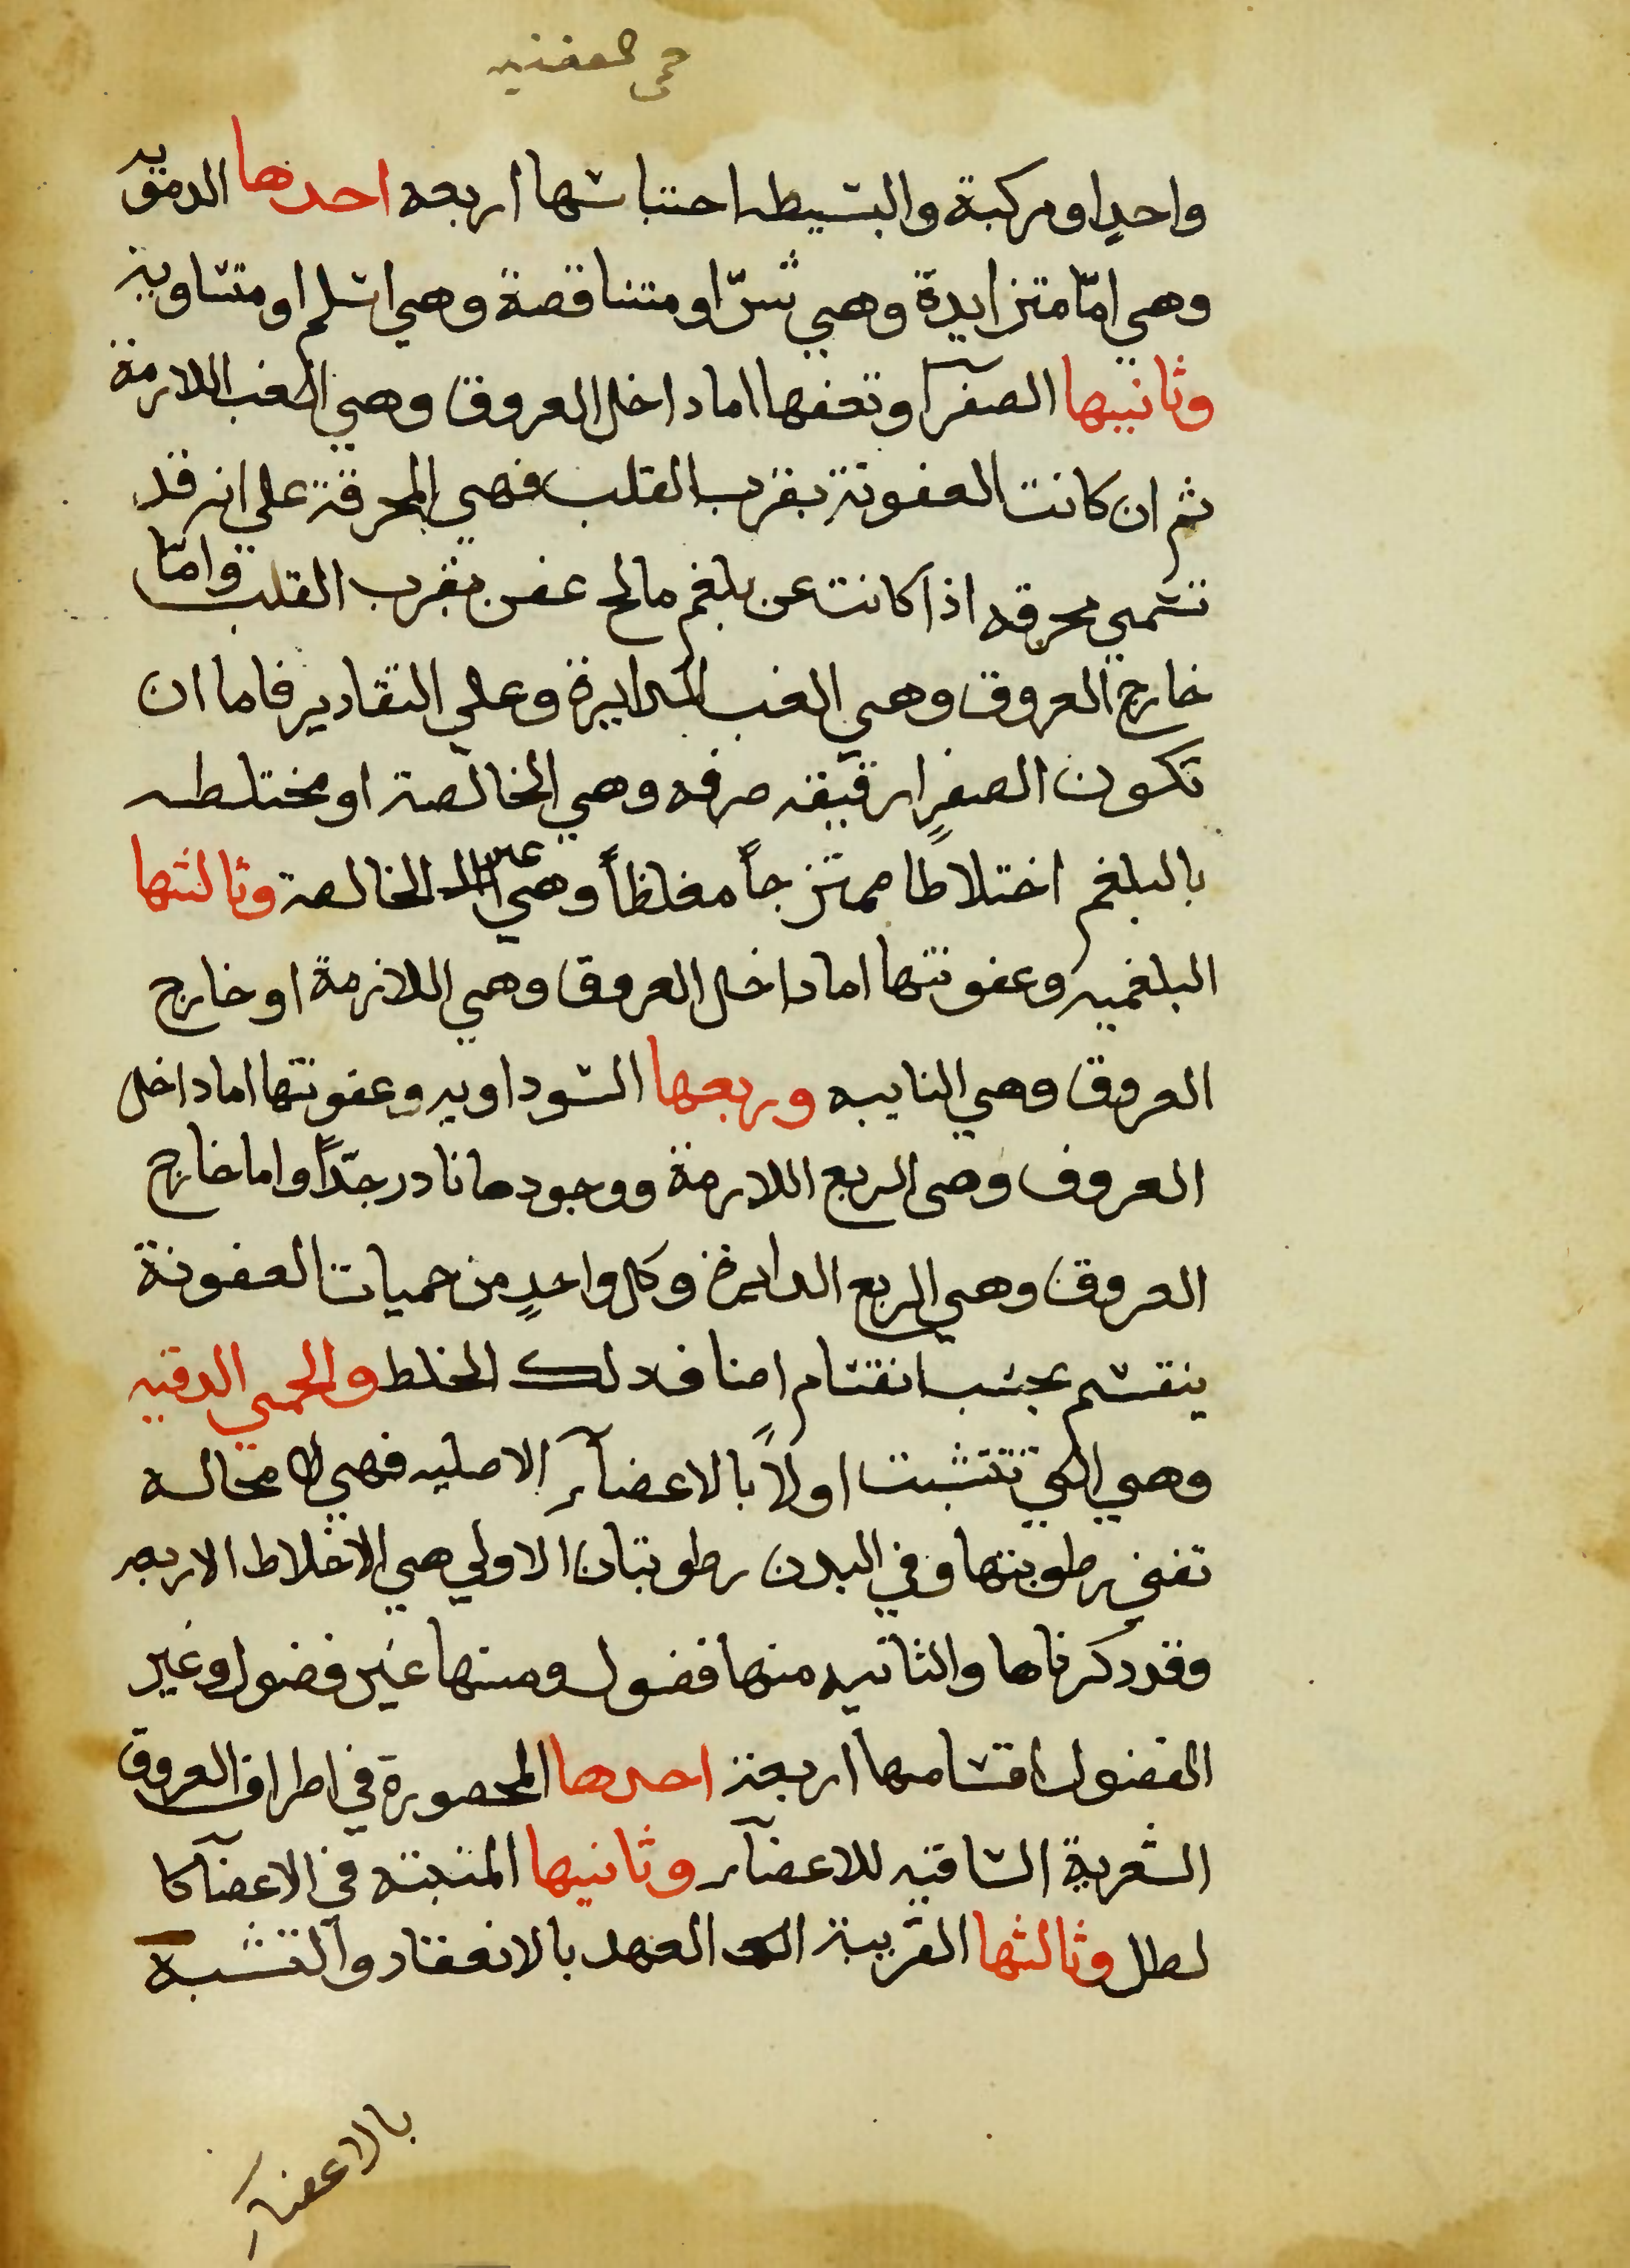 حمى العفنيه
واحدٍ او مركبة والبسيطه اجناسها اربعه احدها الدمويه
وهي امّا متزايدة وهي شرّ او متناقصة وهي اسلم او متساوية
وثانيها الصفرآ وتعفنها اما داخل العروق وهي الغب اللازمة
ثم ان كانت العفونة بقرب القلب فهي المحرقة على انه قد
تسمي محرقه اذا كانت عن بلغم مالح عفن بقرب القلب وامّا
خارج العروق وهي الغب الدايرة وعلي التقادير فاما ان
تكون الصفرا رقيقه صرفه وهي الخالصة او مختلطه
بالبلغم اختلاطا ممتزجاً مغلظاً وهي غير الخالصة وثالثها
البلغميه وعفونتها اما داخل العروق وهي اللازمة او خارج
العروق وهي النايبه وربعها السوداويه وعفونتها اما داخل
العروق وهى الربع اللازمة ووجودها نادر جدّاً واما خارج
العروق وهي الربع الدايرة وكل واحدٍ من حميات العفونة
ينقسم بحسب انقسام اصناف ذلك الخلط والحمي الدقيه
وهي التي تتشبت اولاً بالاعضآء الاصليه فهي لا محاله
تفني رطوبتها وفي البدن رطوبتان الاولي هي الاخلاط الاربعه
وقد ذكرناها والثانيه منها فضول ومنها غير فضول وغير
الفضول اقسامها اربعة احدها المحصورة في اطراف العروق
الشعرية الساقيه للاعضآء وثانيها المنبتة في الاعضآ كا
لطل وثالثها القريبة العهد بالانعقاد والتشبه
بالاعضآء